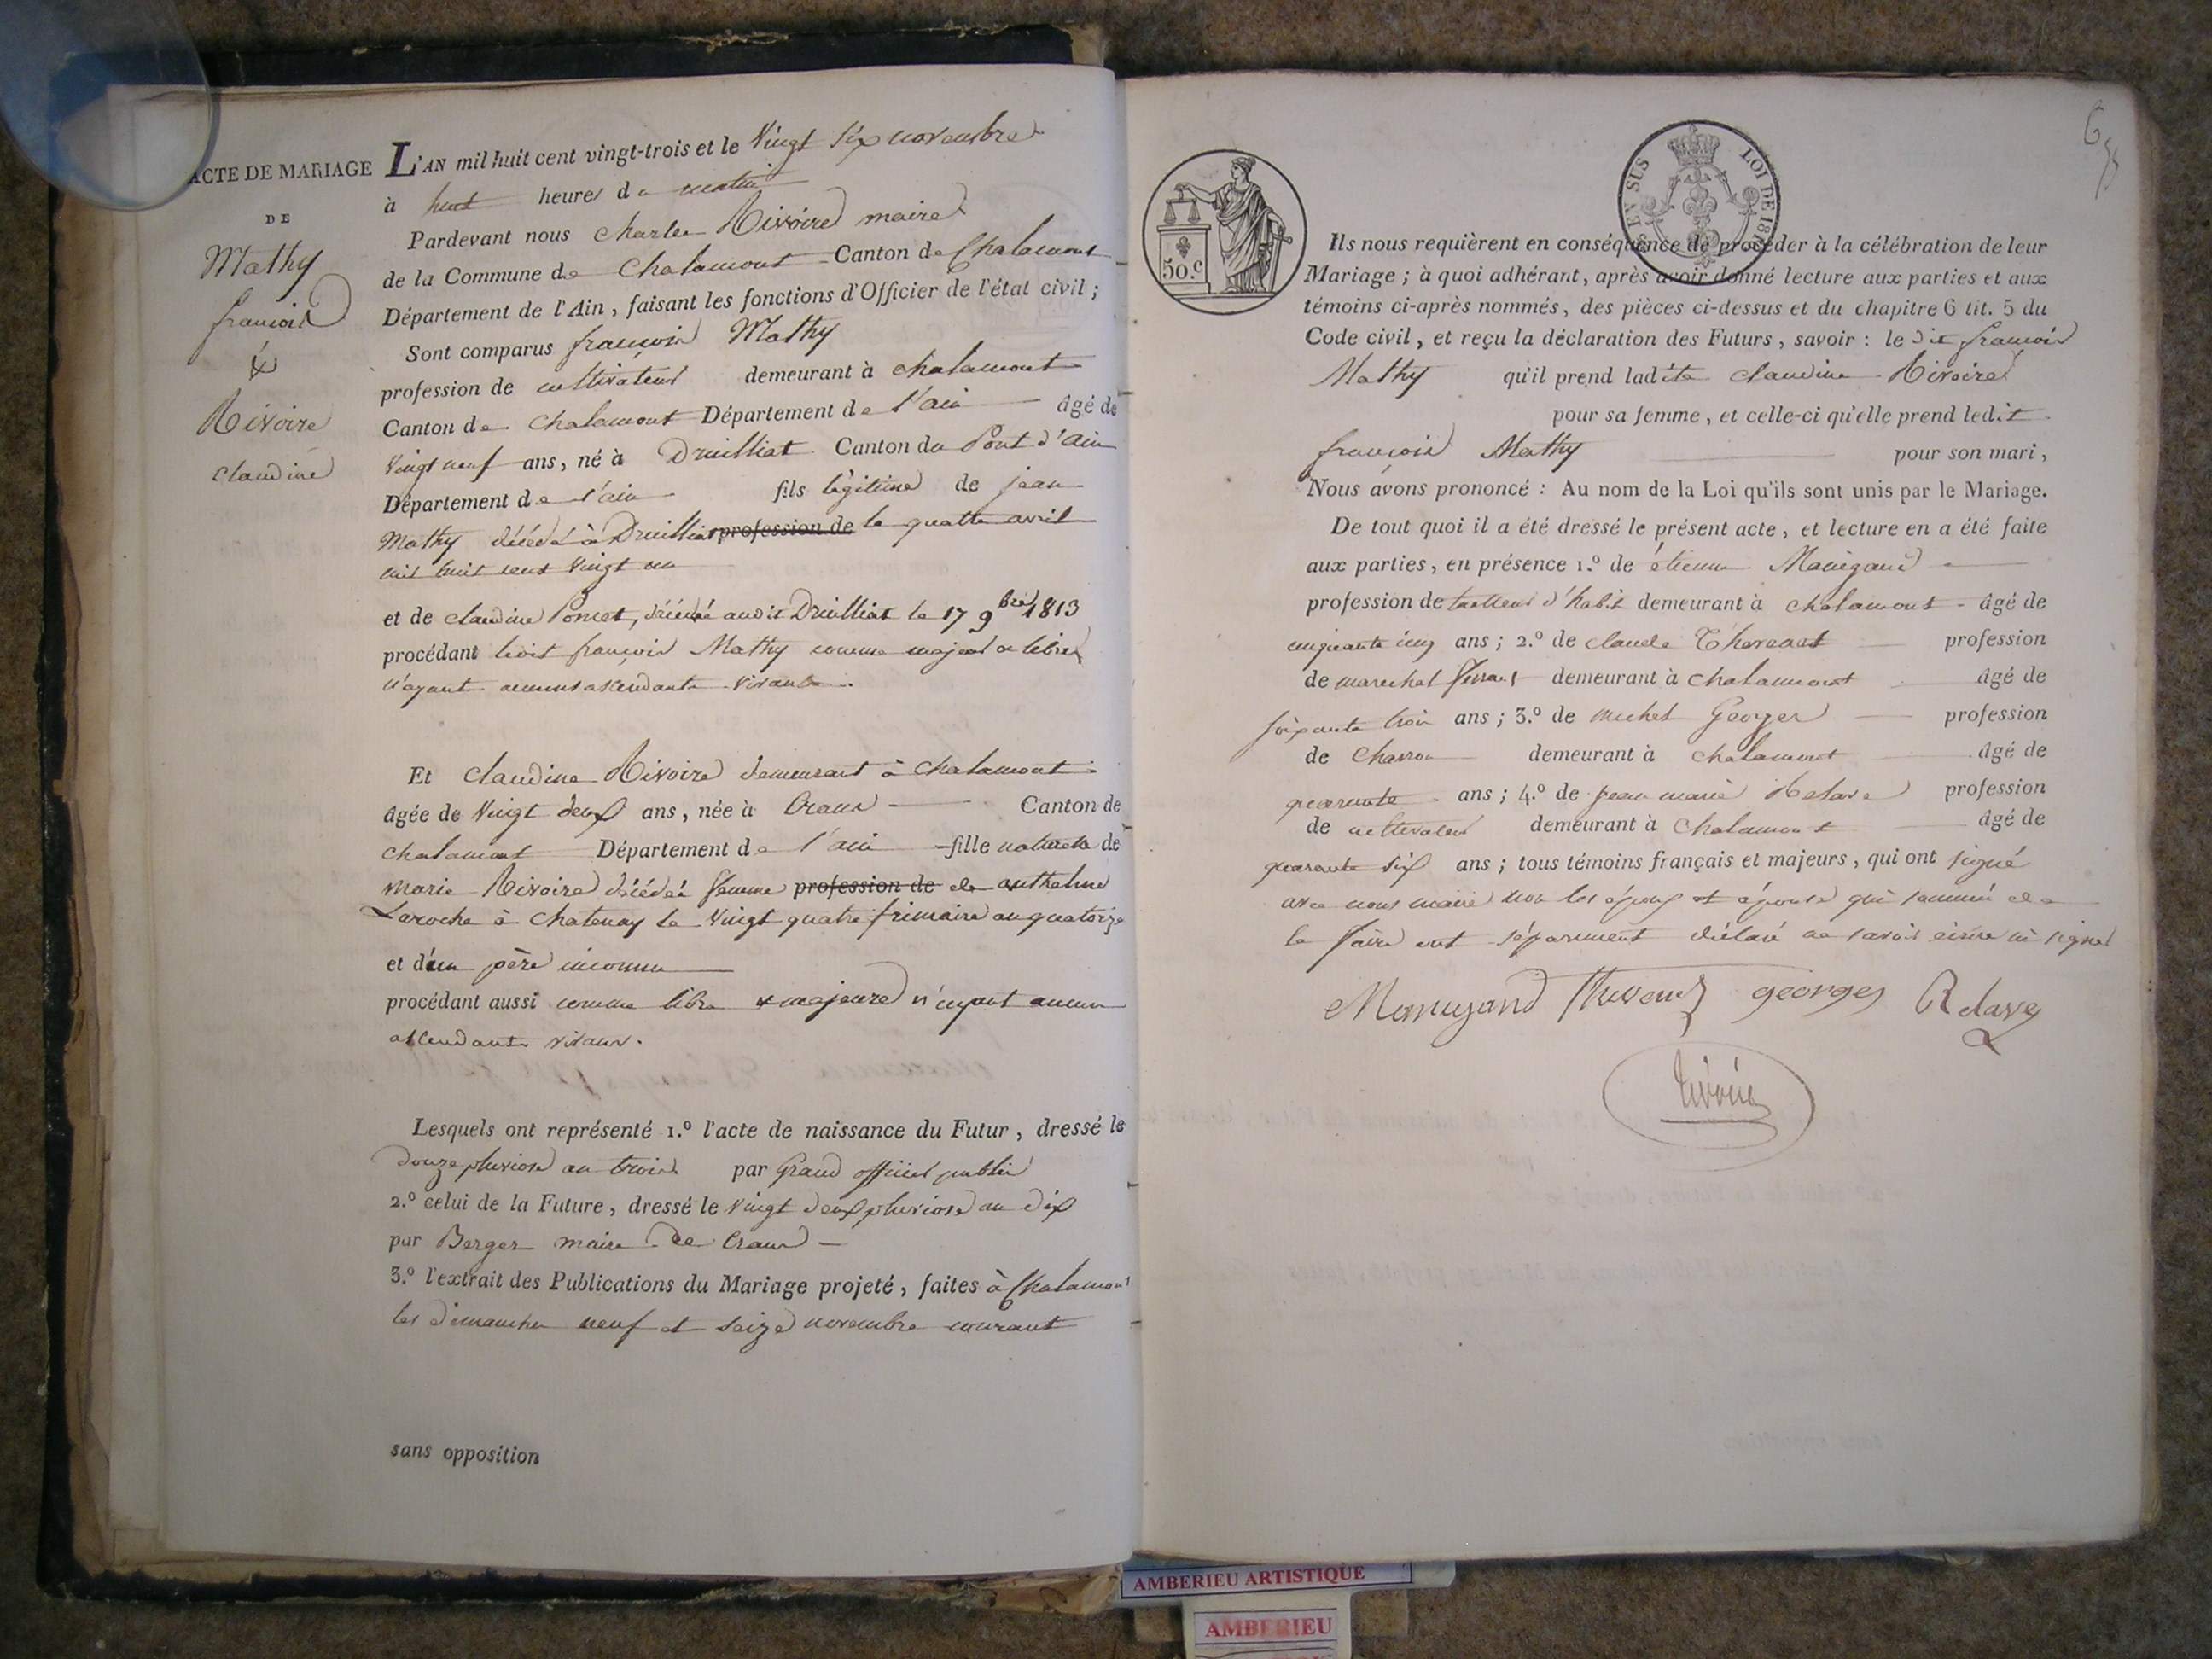 ACTE DE MARIAGE
DE
Mathy
françois
&
Rivoire
claudine
L'AN mil huit cent vingt-trois et le Vingt six novembre
à huit heures du matin
Pardevant nous Charles Rivoire maire
de la Commune de Chalamont Canton de Chalamont
Département de l'Ain, faisant les fonctions d'Officier de l'état civil;
Sont comparus françois Mathy
profession de cultivateur demeurant à chalamont
Canton de Chalamont Département de l'ain âgé de
Vingt neuf ans, né à Druilliat Canton du Pont d'ain
Département de l'ain fils légitime de jean
Mathy décédé à Druilliat profession de le quatre avril
mil huit cent vingt un
et de claudine Pomet, décédé audit Druilliat le 17 9bre 1813
procédant ledit françois Mathy comme majeur & libre
n'ayant aucuns ascendants vivants.
Et Claudine Rivoire demeurant à Chalamont
âgée de Vingt deux ans, née à Crans Canton de
chalamont Département de l'ain fille naturelle de
marie Rivoire décédée femme profession de de anthelme
Laroche à Chatenay le Vingt quatre frimaire an quatorze
et d'un père inconnu
procédant aussi comme libre & majeure n'ayant aucun
ascendants vivans.
Lesquels ont représenté 1.º l'acte de naissance du Futur, dressé le
douze pluviose an trois par Graud officier public
2.º celui de la Future, dressé le vingt deux pluviose an dix
par Berger maire de Crans
3.º l'extrait des Publications du Mariage projeté, faites à Chalamont
les dimanches neuf et seize novembre courant
sans opposition
6
50.c
EN SUS
LOI DE 181
Ils nous requièrent en conséquence de procéder à la célébration de leur
Mariage; à quoi adhérant, après avoir donné lecture aux parties et aux
témoins ci-après nommés, des pièces ci-dessus et du chapitre 6 tit. 5 du
Code civil, et reçu la déclaration des Futurs, savoir: le dit françois
Mathy qu'il prend ladite claudine Rivoire
pour sa femme, et celle-ci qu'elle prend ledit
françois Mathy pour son mari,
Nous avons prononcé: Au nom de la Loi qu'ils sont unis par le Mariage.
De tout quoi il a été dressé le présent acte, et lecture en a été faite
aux parties, en présence 1.º de étienne Manigand
profession de tailleur d'habit demeurant à chalamont âgé de
cinquante cinq ans; 2.º de claude profession
de marechal ferrant demeurant à chalamont âgé de
soixante trois ans; 3.º de michel Georges profession
de Charron demeurant à chalamont âgé de
quarante ans; 4.º de jean marie Relave profession
de cultivateur demeurant à Chalamont âgé de
quarante six ans; tous témoins français et majeurs, qui ont signé
avec nous maire non les époux et épouse qui sommé de
le faire ont séparement déclaré ne savoir écrire ni signer
Manigand georges Relave
Rivoire
AMBERIEU ARTISTIQUE
AMBERIEU